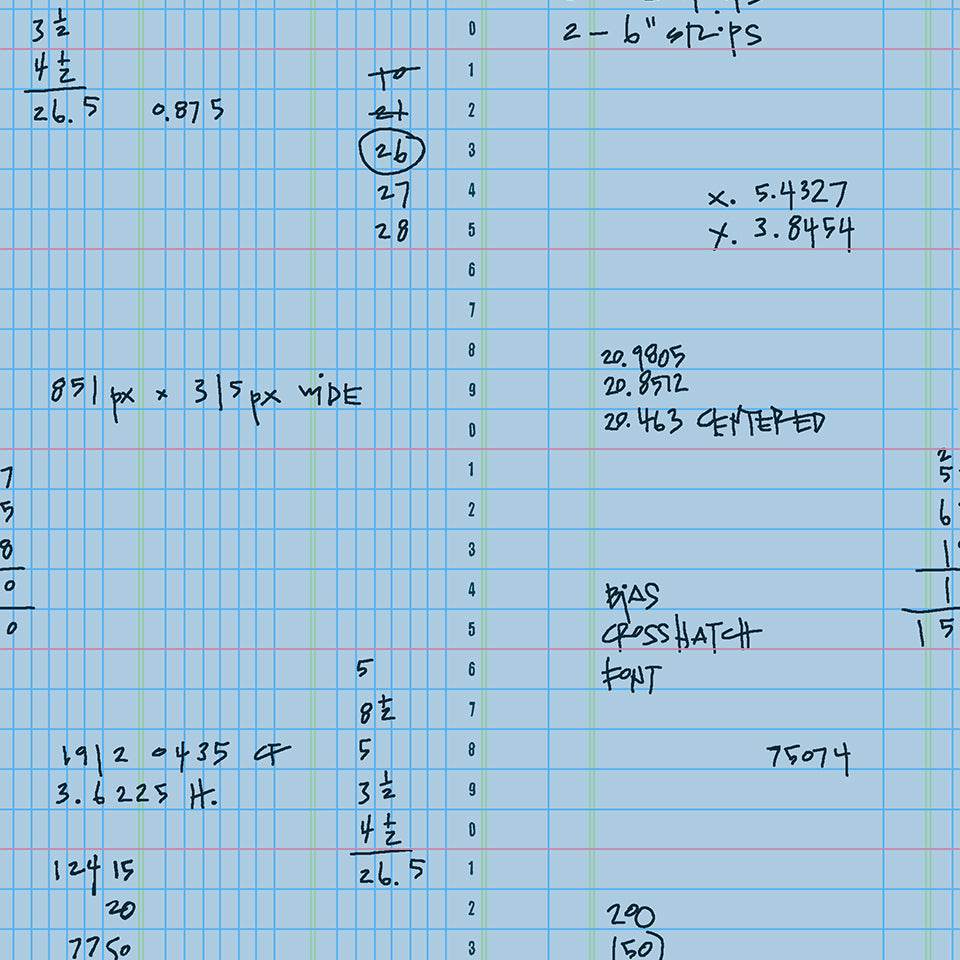 2 – 6" strips
3 1/2
4 1/2
26.5 0.875
10
21
26
27
28
0
1
2
3
4
5
6
7
8
9
0
1
2
3
4
5
6
7
8
9
0
1
2
3
x. 5.4327
y. 3.8454
851 px x 315 px WIDE
20.9805
20.8572
20.463 CENTERED
7
5
8
0
0
2
5
6
1
1
15
BIAS
CROSSHATCH
FONT
5
8 1/2
5
3 1/2
4 1/2
26.5
1912 0435 CF
3.6225 H.
75074
12415
20
7750
200
150